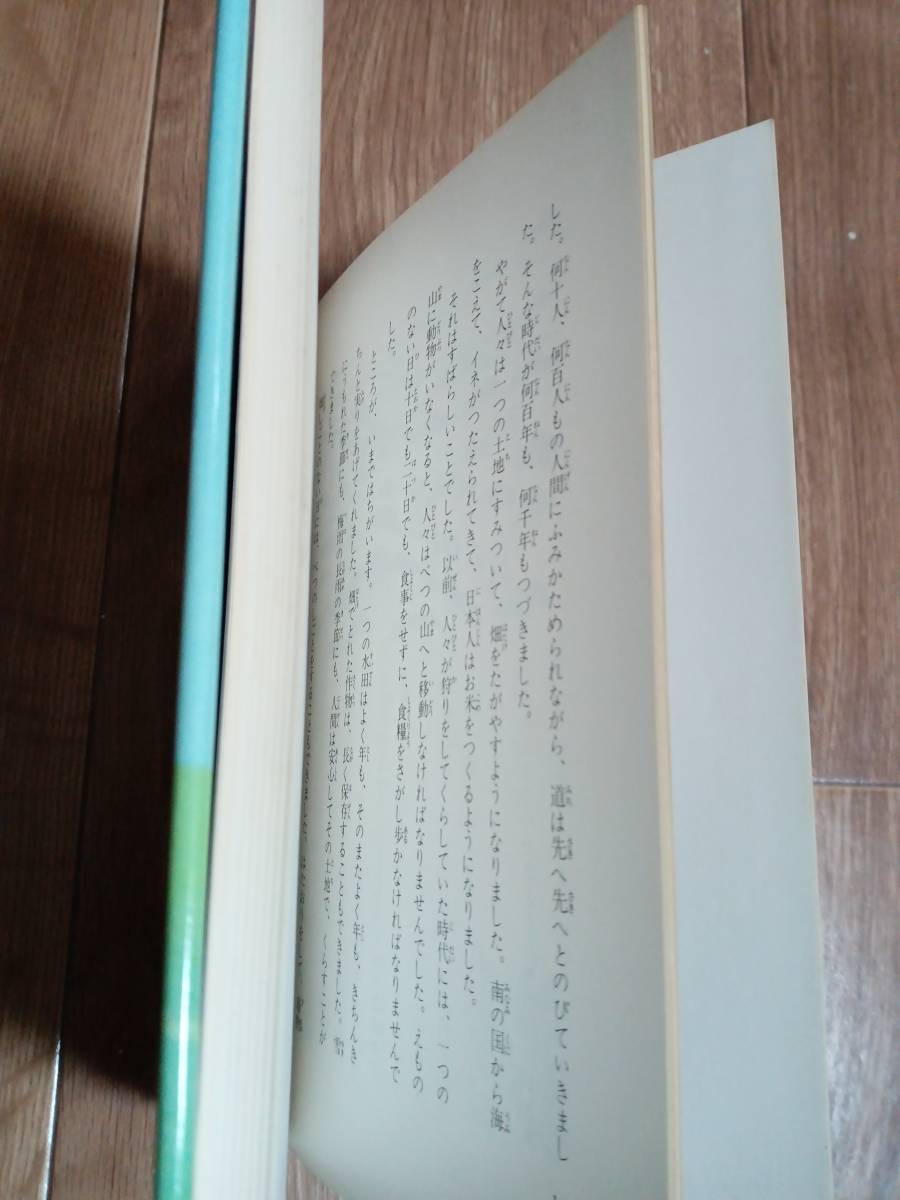 した。何十人、何百人もの人間にふみかためられながら、道は先へ先へとのびていきまし
た。そんな時代が何百年も、何千年もつづきました。
やがて人々は一つの土地にすみついて、畑をたがやすようになりました。南の国から海
をこえて、イネがつたえられてきて、日本人はお米をつくるようになりました。
それはすばらしいことでした。以前、人々が狩りをしてくらしていた時代には、一つの
山に動物がいなくなると、人々はべつの山へと移動しなければなりませんでした。えもの
のない日は十日でも二十日でも、食事をせずに、食糧をさがし歩かなければなりませんで
した。
ところが、いまではちがいます。一つの水田はよく年も、そのまたよく年も、きちんき
ちんと実りをあげてくれました。畑でとれた作物は、長く保存することもできました。
にうもれた季節にも、梅雨の長雨の季節にも、人間は安心してその土地で、くらすことが
できました。